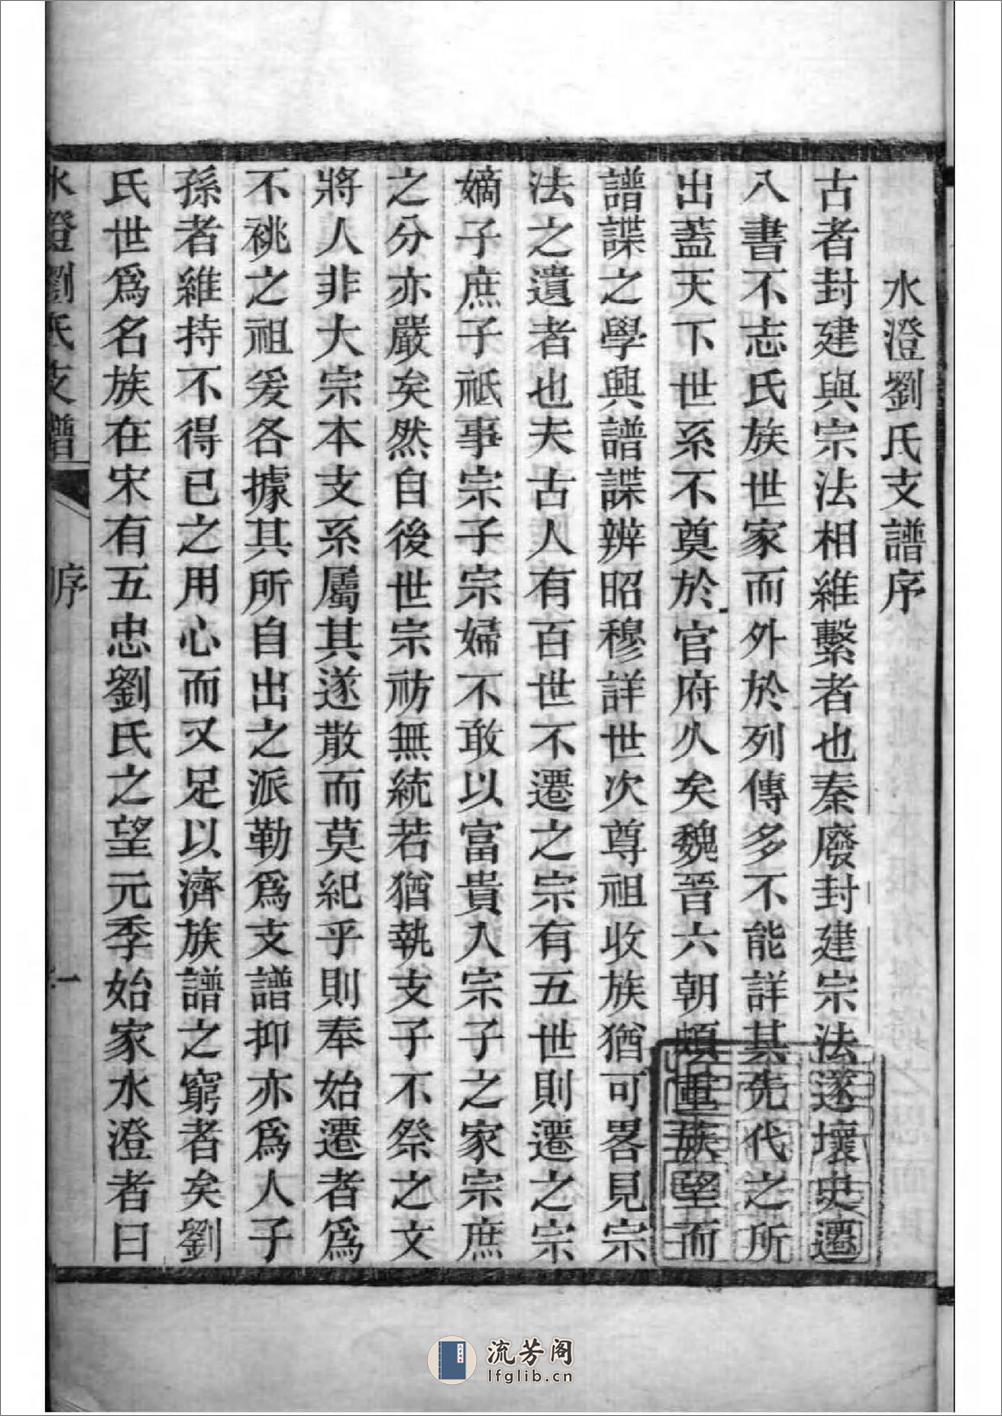 水澄劉氏支譜序
古者封建與宗法相維繫者也秦廢封建宗法遂壞史遷
八書不志氏族世家而外於列傳多不能詳其先代之所
出蓋天下世系不奠於官府久矣魏晉六朝頗重族望而
譜諜之學興譜諜辨昭穆詳世次尊祖收族猶可畧見宗
法之遺者也夫古人有百世不遷之宗有五世則遷之宗
嫡子庶子祇事宗子宗婦不敢以富貴入宗子之家宗庶
之分亦嚴矣然自後世宗祊無統若猶執支子不祭之文
將人非大宗本支系屬其遂散而莫紀乎則奉始遷者爲
不祧之祖爰各據其所自出之派勒爲支譜抑亦爲人子
孫者維持不得已之用心而又足以濟族譜之窮者矣劉
氏世爲名族在宋有五忠劉氏之望元季始家水澄者曰
水澄劉氏支譜 序 一
流芳阁
lfglib.cn